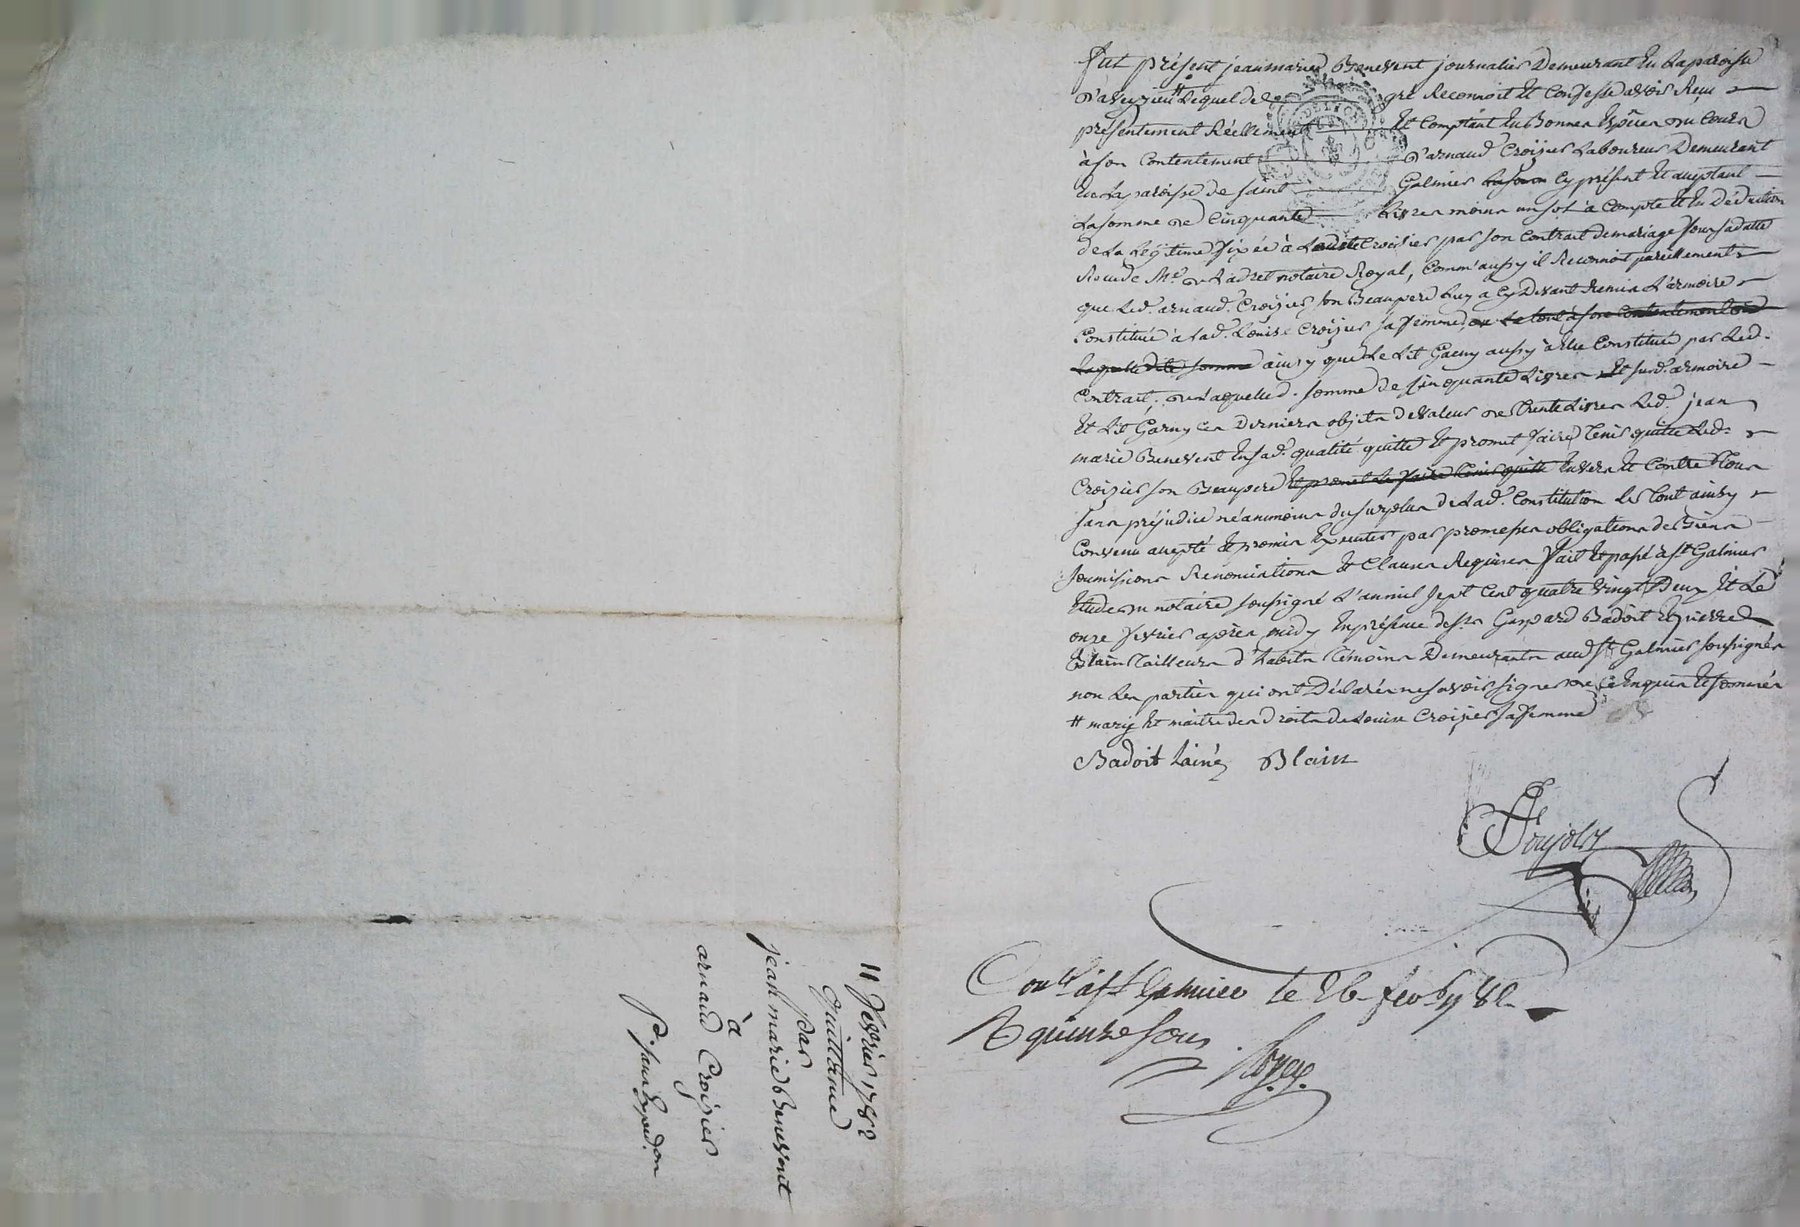 fut présent jean marie Benevent journalier Demeurant En La paroisse
D'aveyzieu # Lequel de gré Reconnoit Et Confesse avoir Reçu
présentement Réellement Et Comptant En Bonnes Espèces du Cours
à son Contentement D'arnaud Croizier Laboureur Demeurant
En La paroisse de saint Galmier Cy présent Et aceptant
La somme de Cinquante Livres moins un sol à Compte Et En Déduction
de La Légitime fixée à Louise Croizier par son Contrat de mariage sous sa datte
Reçu de Me. Ladret notaire Royal, Comm'aussy il Reconnoit pareillement
que Led. arnaud. Croizier son Beaupere Luy a Cy Devant Remis L'armoire
Constitué à Lad. Louise Croizier sa femme, Le tout à son Contentement
Laquelle dite somme ainsy que Le Lit Garny aussy à Elle Constitué par Led.
Contrat, de Laquelle d. somme de Cinquante Livres Et susd. armoire
Et Lit Garny Ces Derniers objets De valeur de trente Livres Led. jean
marie Benevent En sad. qualité quitte Et promet faire tenir quitte Led.
Croizier son Beaupere Et promet Le faire tenir quitte Envers Et Contre Tous
sans préjudice néanmoins du surplus de Lad. Constitution Le tout ainsy
Convenu accepté Et promis Executer par promesses obligations de Biens
soumissions Renonciations Et Clauses Requises fait Et passé à st. Galmier
Etude du notaire soussigné L'an mil sept Cent quatre vingt Deux Et Le
onze fevrier après midy En présence de srs. Gaspard Badoit Et pierre
Blain Tailleurs d'habits témoins Demeurants aud. st. Galmier soussignés
non Les parties qui ont Déclaré ne savoir signer de Ce Enquis Et sommés
# marie Et maitre des Droits de Louise Croizier sa femme
Badoit Lainé Blain
Poujols
Con.lé à st Galmier le 26 fev. 1782
R quinze sous
11 fevrier 1782
Quittance
par
jean marie Benevent
à
arnaud Croizier
Pr. sans Exped.on